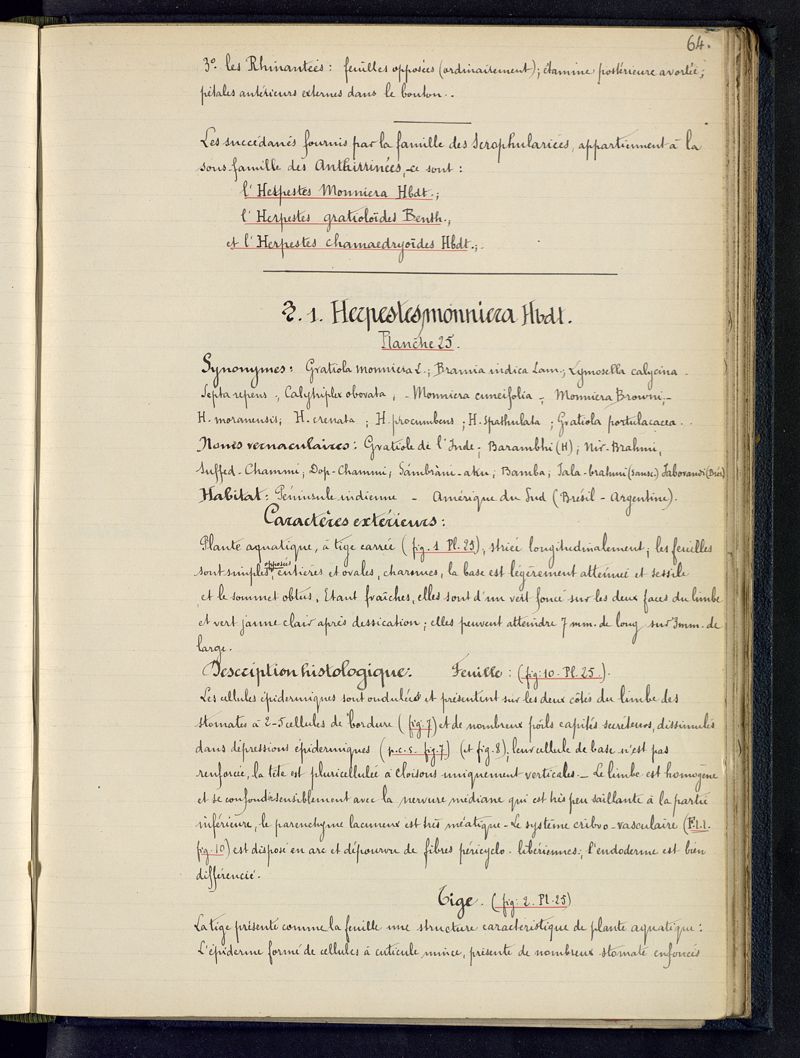 64.
3º. les Rhinantées : feuilles opposées (ordinairement) ; étamine postérieure avortée ;
pétales antérieurs externes dans le bouton . .
Les succédanés fournis par la famille des Scrophulariées, appartiennent à la
sous-famille des Anthirrinées, ce sont :
l'Herpestes Monniera Hbdt. ;
l'Herpestes gratioloïdes Benth. ,
et l'Herpestes chamaedryoïdes Hbdt. ; .
§. 1. Herpestes monniera Hbdt.
Planche 25.
Synonymes : Gratiola monniera L. ; Bramia indica Lam. ; Lymosella calycina -
Septa repens . , Calytriplex obovata , - Monniera cuneifolia - Monniera Browni , -
H. moranensis ; H. crenata ; H. procumbens ; H. spathulata ; Gratiola portulacacea . .
Noms vernaculaires : Gratiole de l'Inde ; Barambhi (H) ; Nir-Brahmi,
Suffed-Chammi ; Dop-Chammi ; Sâmbrâni-aku ; Bamba ; Jala-brahmi (Sansc.) Jaborandi (Brés)
Habitat : Péninsule indienne - Amérique du Sud (Brésil - Argentine).
Caractères extérieurs :
Plante aquatique, à tige carrée (fig. 1 Pl. 25), striée longitudinalement ; les feuilles
sont simples, opposées entières et ovales, charnues, la base est légèrement atténué et sessile
et le sommet obtus. Etant fraîches, elles sont d'un vert foncé sur les deux faces du limbe
et vert jaune clair après dessication ; elles peuvent atteindre 7 mm. de long sur 3mm. de
large.
Description histologique : Feuille : (fig: 10 - Pl. 25.).
Les cellules épidermiques sont ondulées et présentent sur les deux côtés du limbe des
stomates à 2-5 cellules de bordure (fig. 7) et de nombreux poils capités secréteurs, dissimulés
dans dépressions épidermiques (p.c.s. fig. 7) (et fig. 8) ; leur cellule de base n'est pas
renforcée, la tête est pluricellulée à cloisons uniquement verticales - Le limbe est homogène
et se confond sensiblement avec la nervure médiane qui est très peu saillante à la partie
inférieure, le parenchyme lacuneux est très méatique - Le système cribro-vasculaire (F.l.l.
fig. 10) est disposé en arc et dépourvu de fibres péricyclo-libériennes ; l'endoderme est bien
différencié.
Tige. (fig: 2. Pl. 25)
La tige présente comme la feuille une structure caractéristique de plante aquatique :
L'épiderme formé de cellules à cuticule mince, présente de nombreux stomate enfoncés